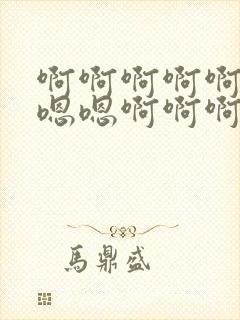 啊啊啊啊啊
嗯嗯啊啊啊
馬鼎盛